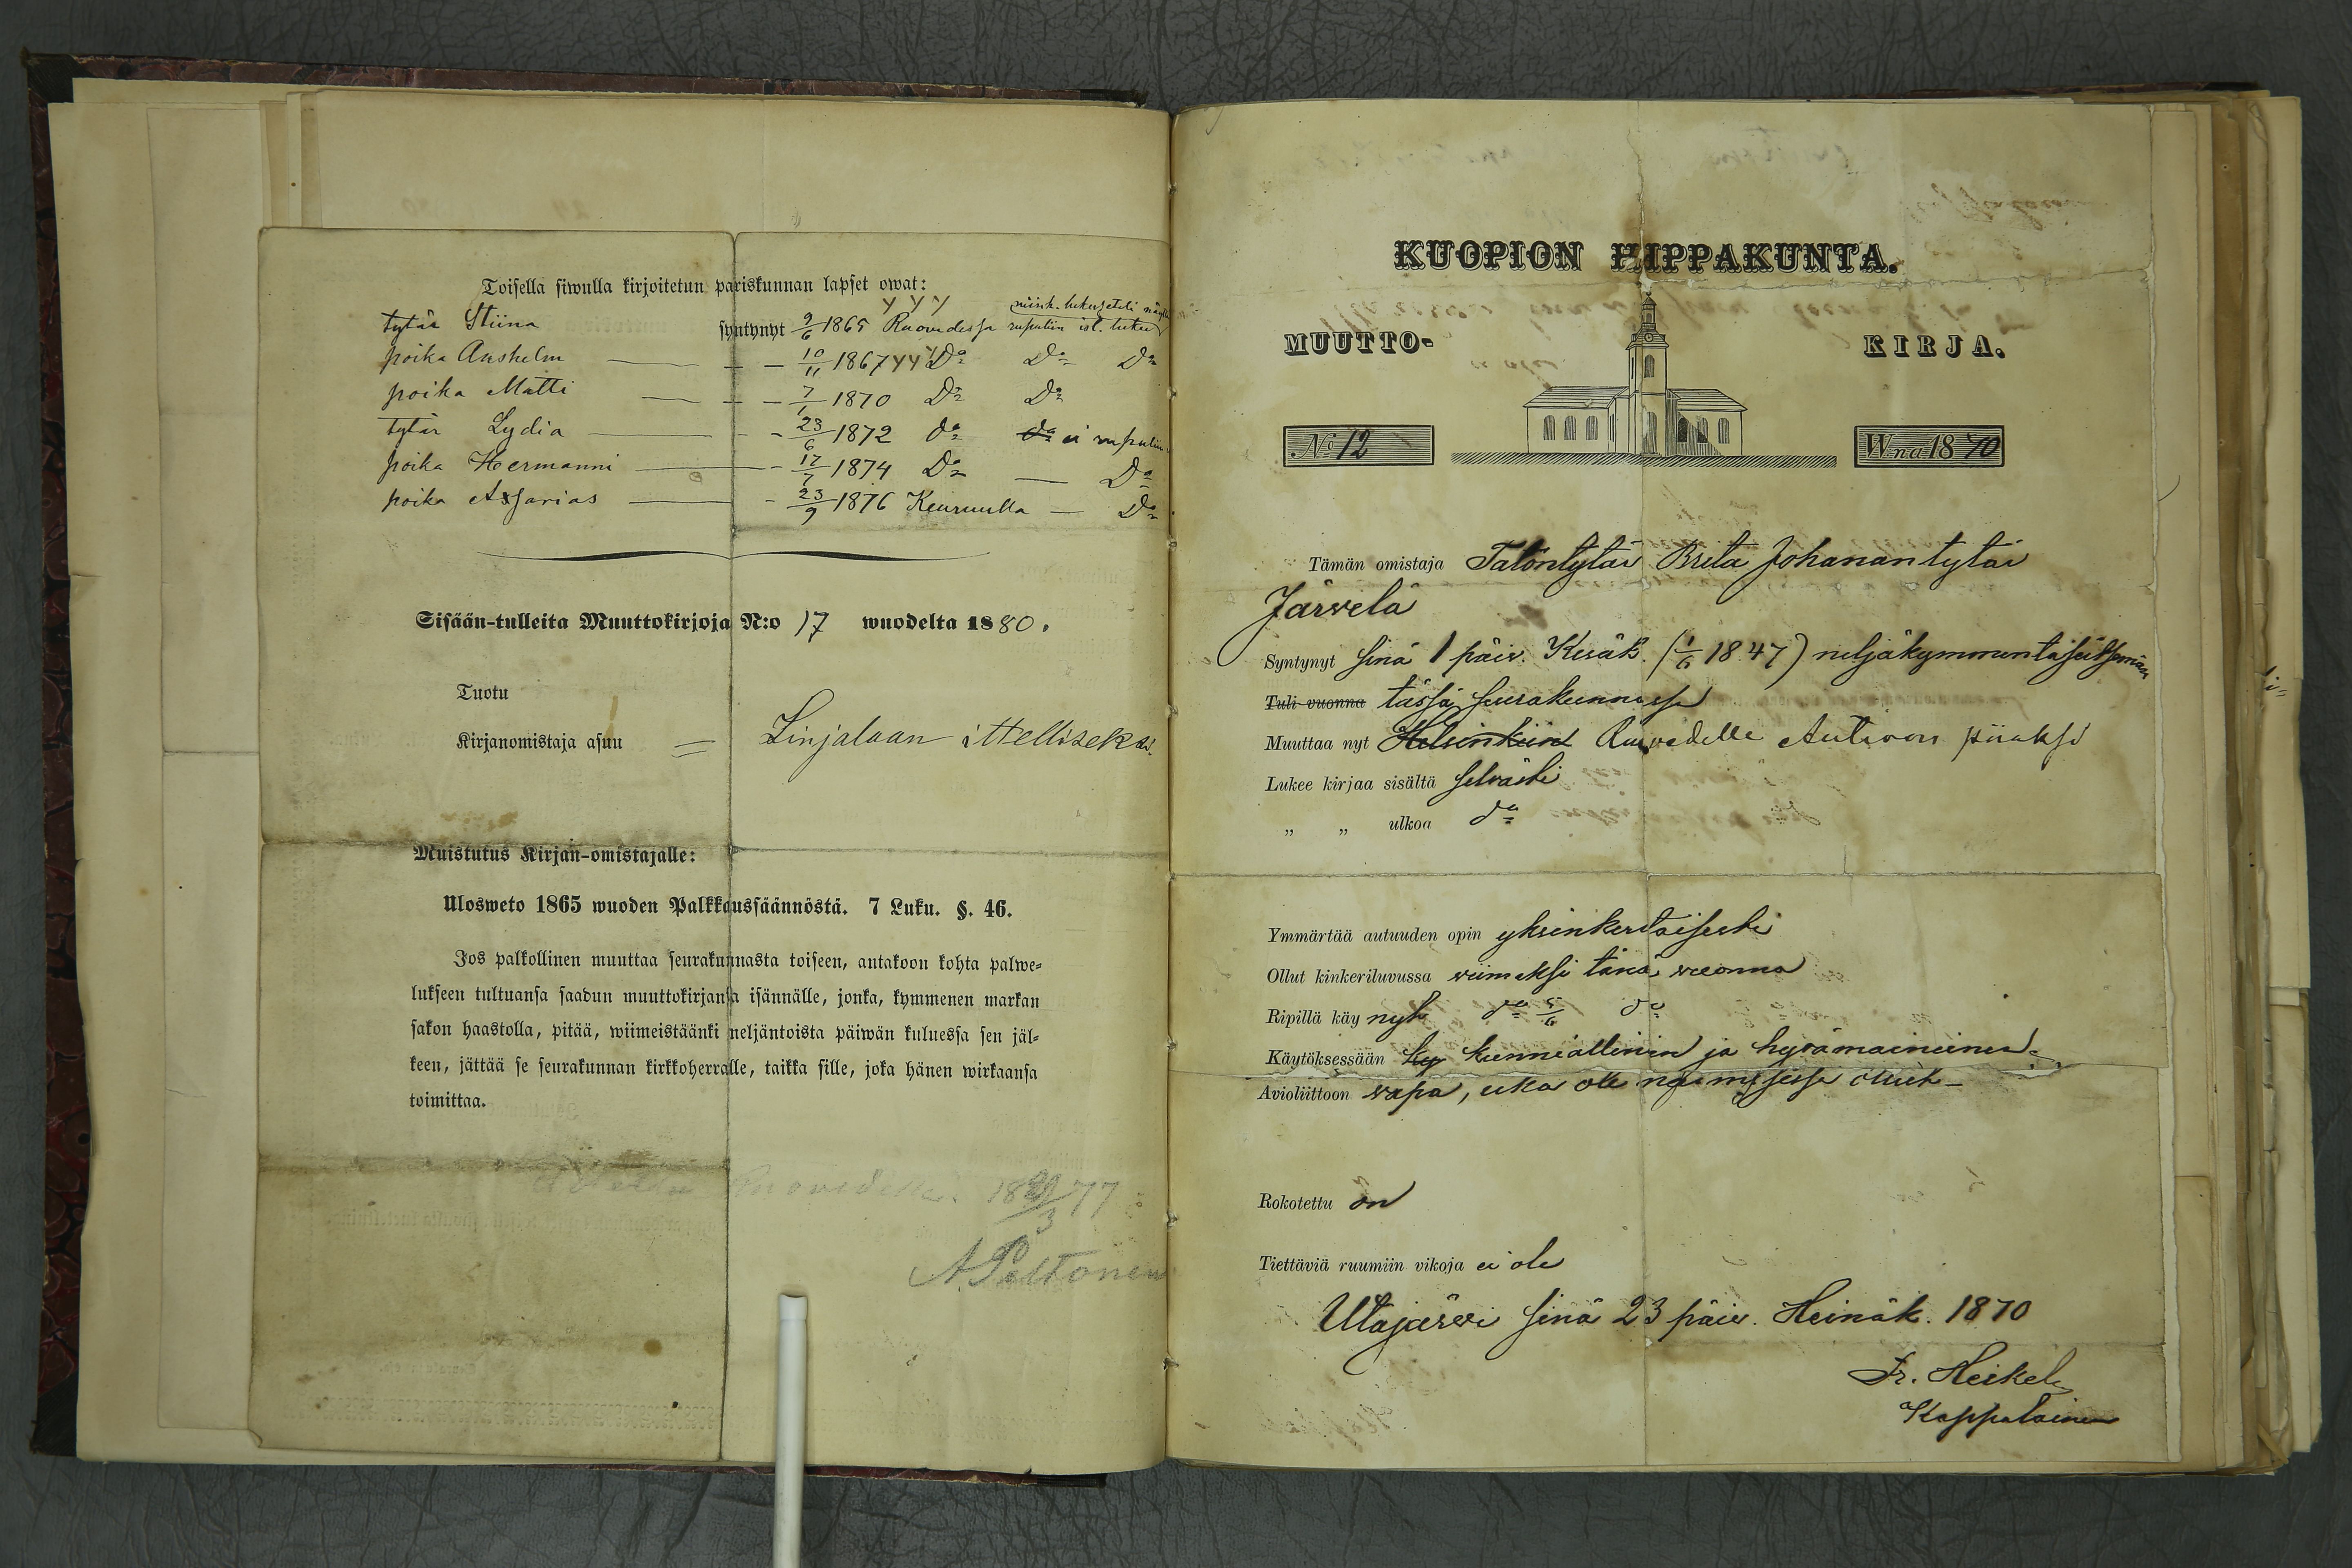 Toisella siwulla kirjoitetun pariskunnan lapset owat:
tytär Stiina syntynyt 9/6 1865 Ruovedessä
poika Anshelm — - - 10/11 1867 Do Do Do
poika Matti — - - 7/1 1870 Do Do
tytär Lydia — - - 23/6 1872 do do ei
poika Hermanni — - 17/7 1874 Do — Do
poika — - 23/9 1876 Keuruulla — Do
Sisään-tulleita Muuttokirjoja N:o 17 wuodelta 1880.
Tuotu
Kirjanomistaja asuu = Linjalaan ittelliseksi.
Muistutus Kirjan-omistajalle:
Ulosweto 1865 wuoden Palkkaussäännöstä. 7 Luku. §. 46.
Jos palkollinen muuttaa seurakunnasta toiseen, antakoon kohta palwe-
lukseen tultuansa saadun muuttokirjansa isännälle, jonka, kymmenen markan
sakon haastolla, pitää, wiimeistäänki neljäntoista päiwän kuluessa sen jäl-
keen, jättää se seurakunnan kirkkoherralle, taikka sille, joka hänen wirkaansa
toimittaa.
Ruovedellä. 18 /3 77
A. Peltonen
KUOPION HIPPAKUNTA.
MUUTTO- KIRJA.
No 12 Wna 1870
Tämän omistaja Talontytär Brita Johanantytär
Järvelä
Syntynyt sinä 1 päiv. Kesäk. (1/6 1847) neljäkymmentäseitsemän
Tuli vuonna tässä seurakunnassa
Muuttaa nyt Helsinkiin Ruovedelle piiaksi
Lukee kirjaa sisältä selvästi
„ „ ulkoa do
Ymmärtää autuuden opin yksinkertaisesti
Ollut kinkeriluvussa viimeksi tänä vuonna
Ripillä käy nyt do 5/6 do
Käytöksessään kunniallinen ja hyvämaineinen.
Avioliittoon vapa, eikä ole naimisessa ollut
Rokotettu on
Tiettäviä ruumiin vikoja ei ole
Utajärvi sinä 23 päiv. Heinäk. 1870
Fr. Heikel
Kappalainen